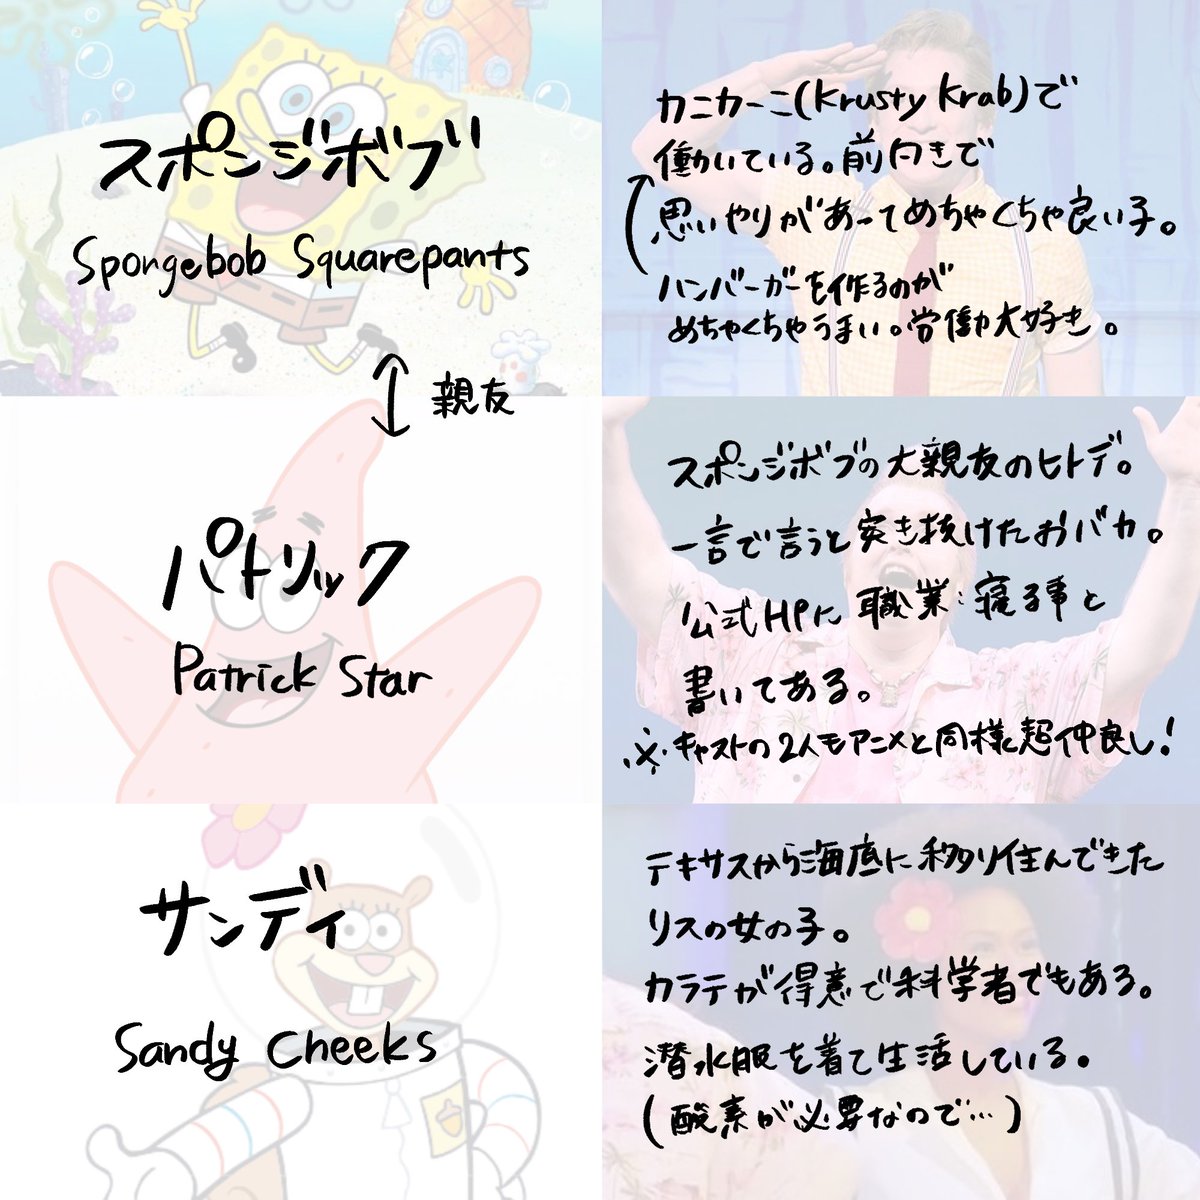 スポンジボブ
Spongebob Squarepants
カニカーニ(Krusty Krab)で
働いている。前向きで
思いやりがあってめちゃくちゃ良い子。
ハンバーガーを作るのが
めちゃくちゃうまい。労働大好き。
親友
パトリック
Patrick Star
スポンジボブの大親友のヒトデ。
一言で言うと突き抜けたおバカ。
公式HPに職業:寝る事と
書いてある。
※キャストの2人もアニメと同様に超仲良し!
サンディ
Sandy Cheeks
テキサスから海底に移り住んできた
リスの女の子。
カラテが得意で科学者でもある。
潜水服を着て生活している。
(酸素が必要なので…)